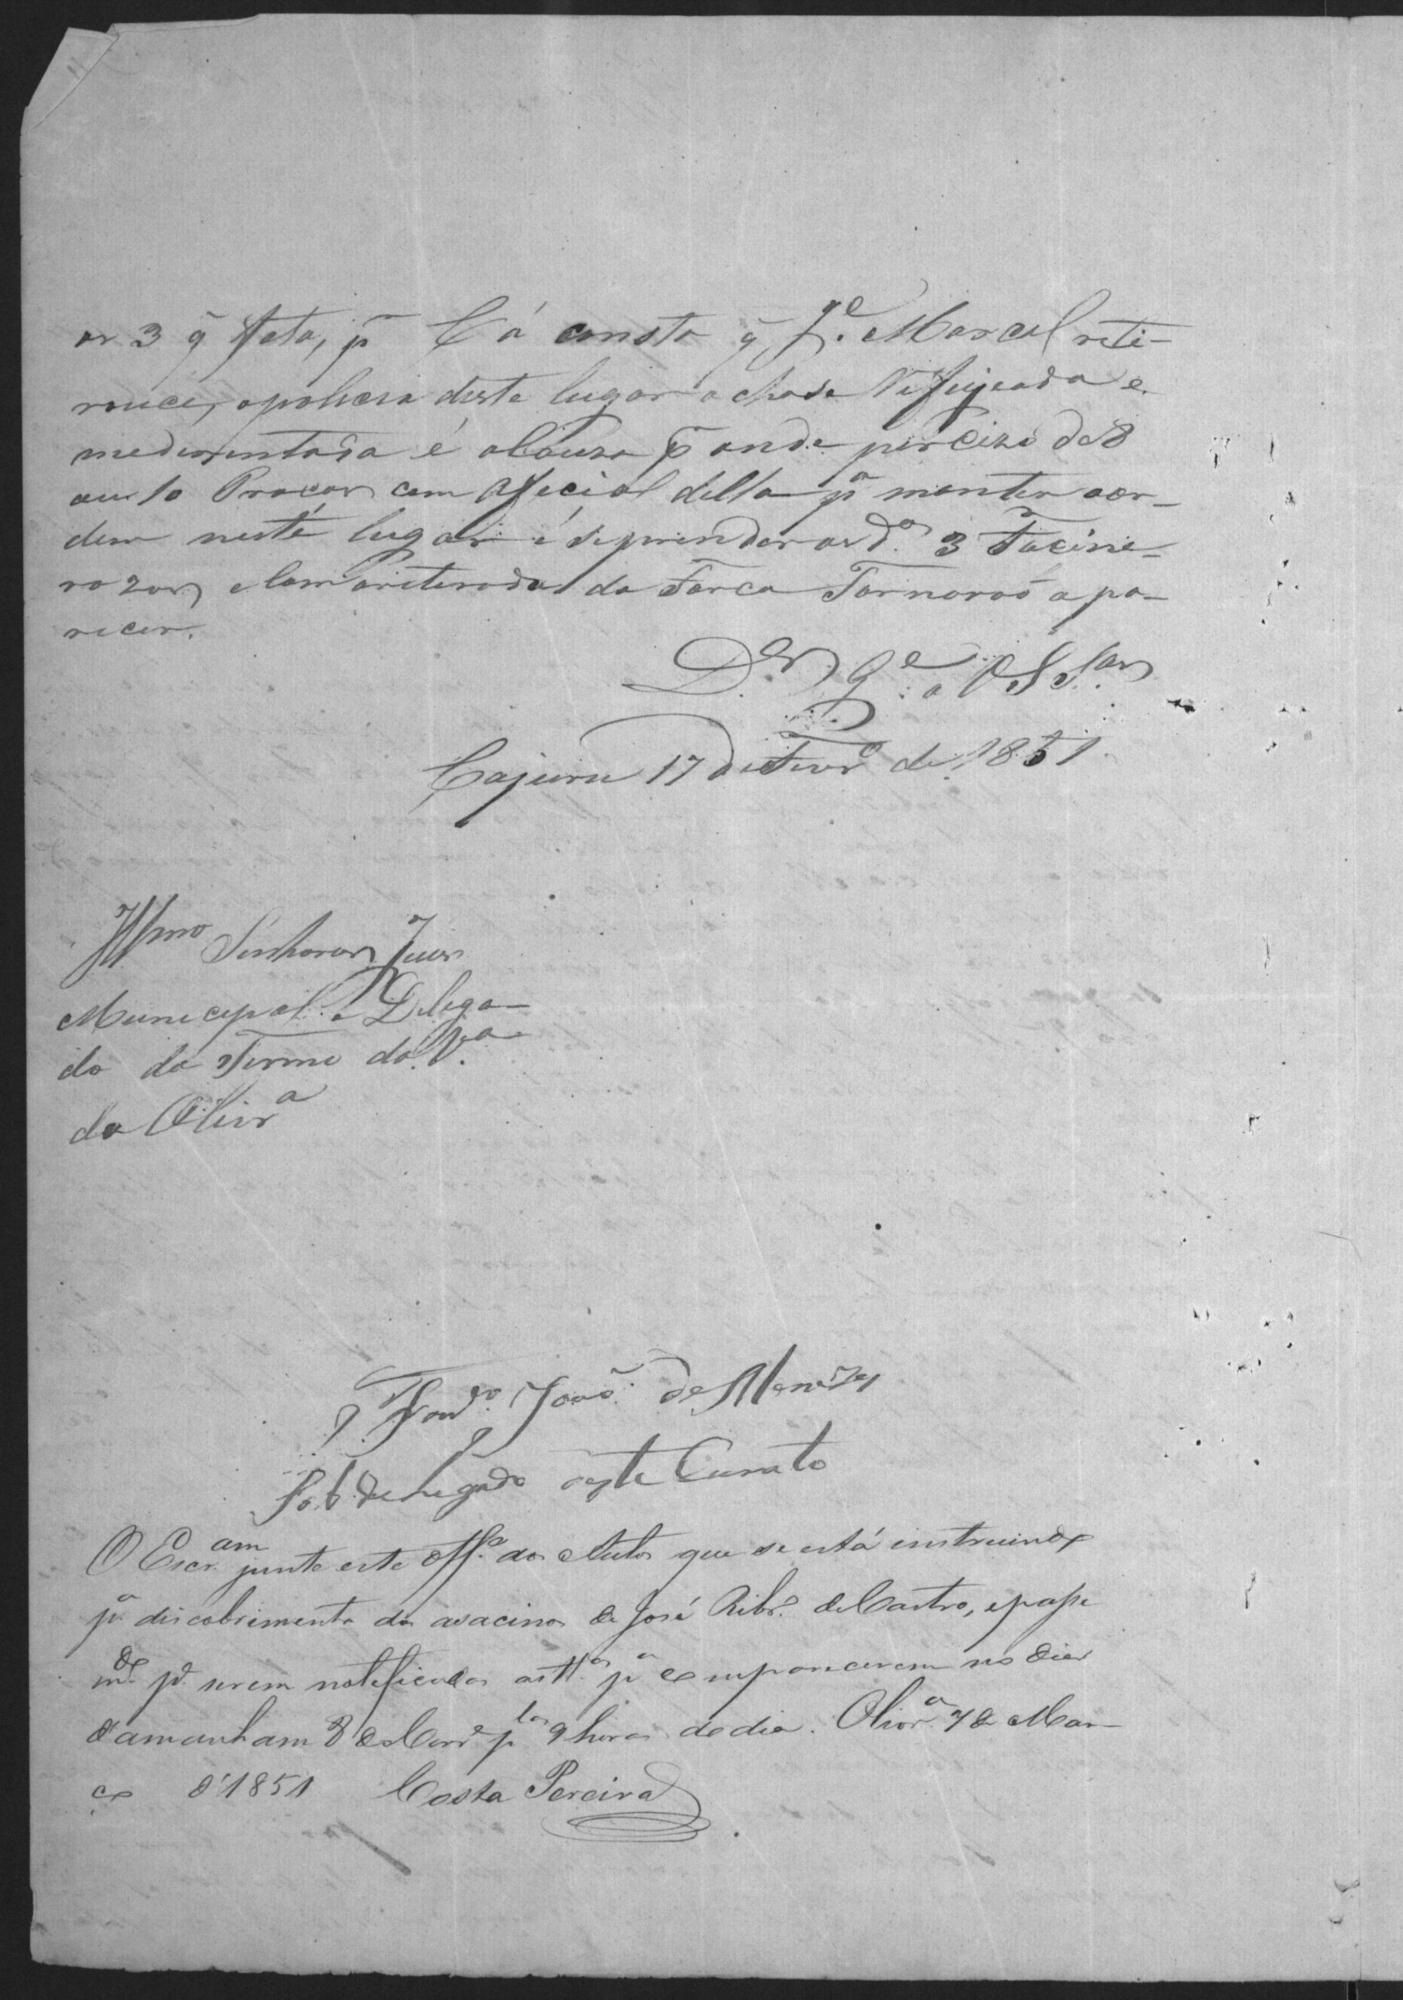 os 3 q̃ feta, pª Cá consta q̃ Jᵉ. Marcal reti-
rouce, apolicia deste lugar achase Refujeada e
medorentada é aCauza pᵃ onde percizo de 8
ou 10 Pracas com Aficial della pª manter aor-
dem neste lugar é seprender os dᵒˢ 3 Facine-
rozos, elem aretirada da Forca Tornaraõ apa-
recer.
D.ˢ g.ᵉ a VSS.ᵃˢ
Cajuru 17 de Fevrº de 1851.
Illmo Senhores Juis
Municepal e Delega-
do do Termo da Vª
da Olivrª
João de Menezes
Sob delegado deste Curato
O Escr.am junte este Off.º aos Autos que se está instruindo
pª discobrimento do asacino de José Ribrº de Castro, epasse
mdº pª serem notificadas as ttªs pª comparecerem no dia
d'amanham 8 do Corrᵉ pˡᵃˢ 9 horas do dia. Olivrª 7 de Mar-
ço d'1851 Costa Pereira